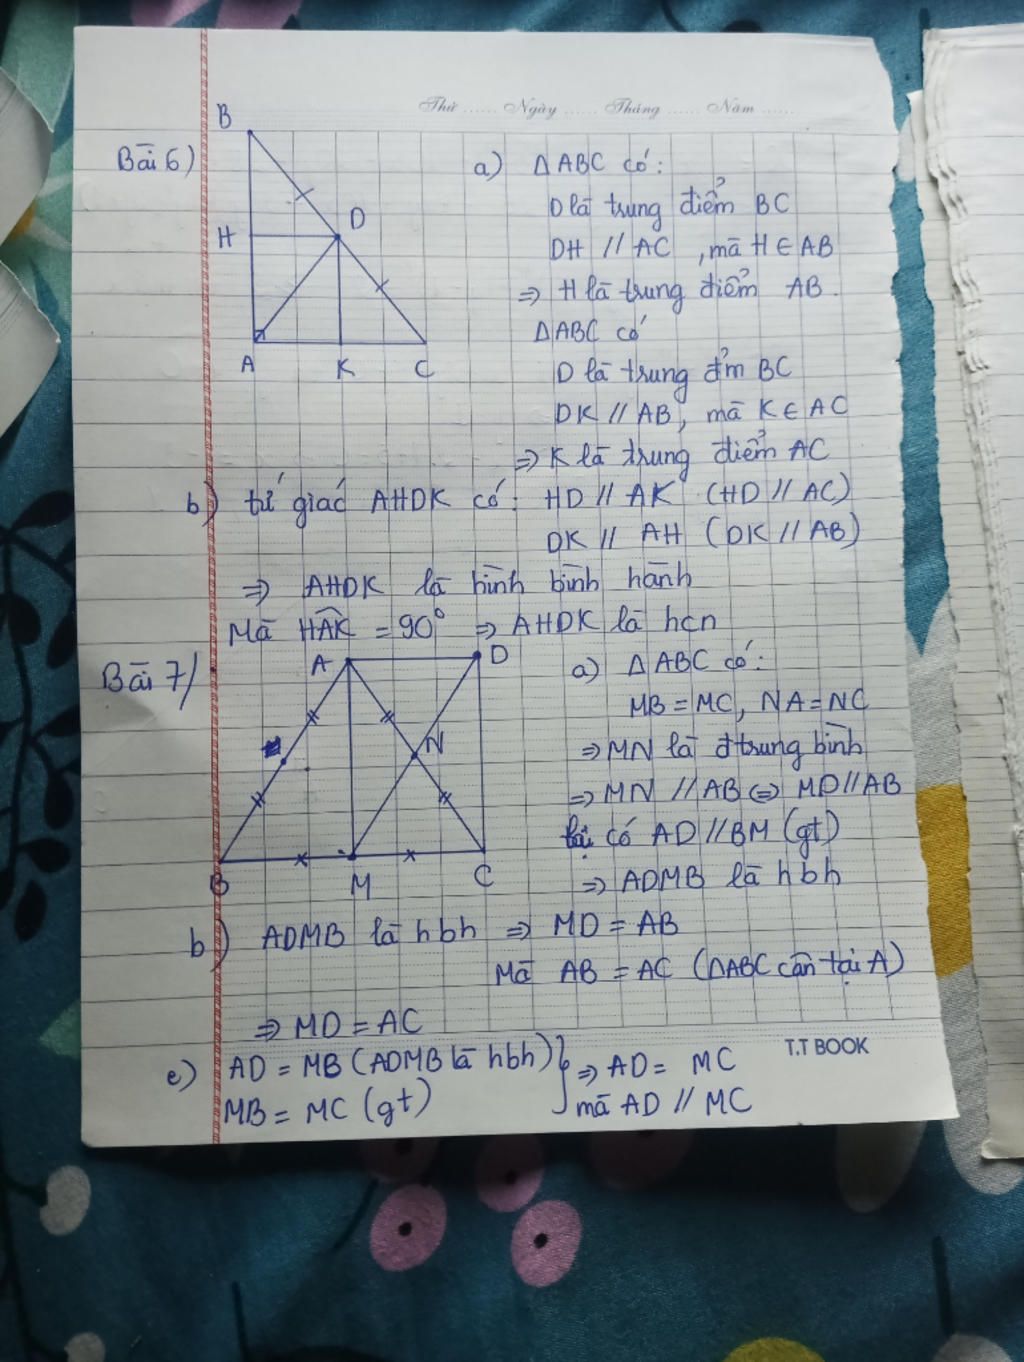 Thứ ...... Ngày ...... Tháng ...... Năm ......
Bài 6)
B
H
D
A
K
C
a) ΔABC có:
D là trung điểm BC
DH // AC , mà H ∈ AB
⇒ H là trung điểm AB.
ΔABC có
D là trung đ'm BC
DK // AB, mà K ∈ AC
⇒ K là trung điểm AC
b) tứ giác AHDK có: HD // AK (HD // AC)
DK // AH (DK // AB)
⇒ AHDK là hình bình hành
Mà HAK = 90° ⇒ AHDK là hcn
Bài 7)
A
D
N
B
M
C
a) ΔABC có:
MB = MC, NA = NC
⇒ MN là đ trung bình
⇒ MN // AB ⇔ MD // AB
lại có AD // BM (gt)
⇒ ADMB là hbh
b) ADMB là hbh ⇒ MD = AB
Mà AB = AC (ΔABC cân tại A)
⇒ MD = AC
c) AD = MB (ADMB là hbh) } ⇒ AD = MC
MB = MC (gt) mà AD // MC
T.T BOOK